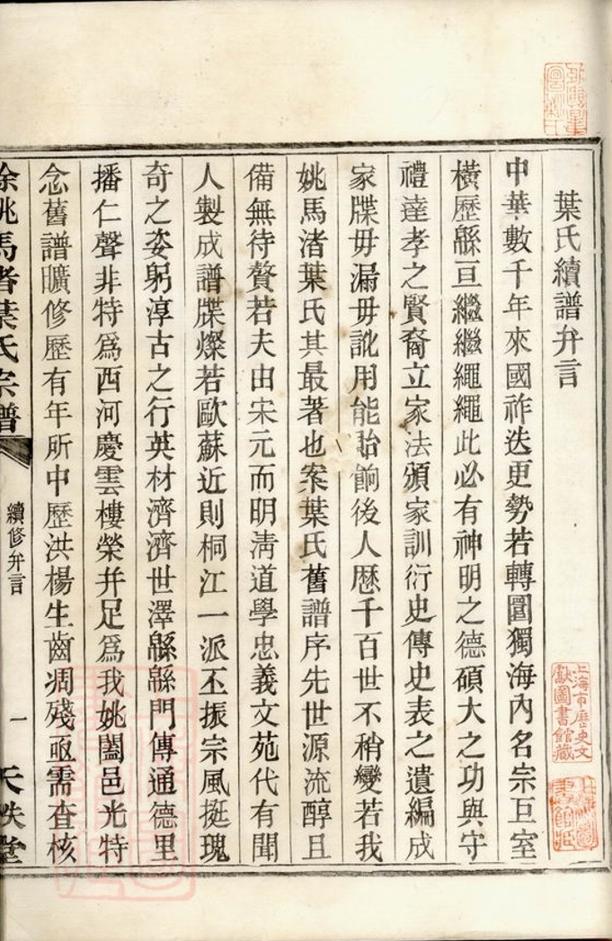 葉氏續譜弁言
中華數千年來國祚迭更勢若轉圜獨海內名宗巨室
橫歷緜亘繼繼繩繩此必有神明之德碩大之功與守
禮達孝之賢裔立家法頒家訓衍史傳史表之遺編成
家牒毋漏毋訛用能貽餉後人歷千百世不稍變若我
姚馬渚葉氏其最著也案葉氏舊譜序先世源流醇且
備無待贅若夫由宋元而明淸道學忠義文苑代有聞
人製成譜牒燦若歐蘇近則桐江一派丕振宗風挺瑰
奇之姿躬淳古之行英材濟濟世澤緜緜門傳通德里
播仁聲非特爲西河慶雲樓榮并足爲我姚闔邑光特
念舊譜曠修歷有年所中歷洪楊生齒凋殘亟需查核
餘姚馬渚葉氏宗譜
續修弁言
一
上海市歷史文
獻圖書館藏